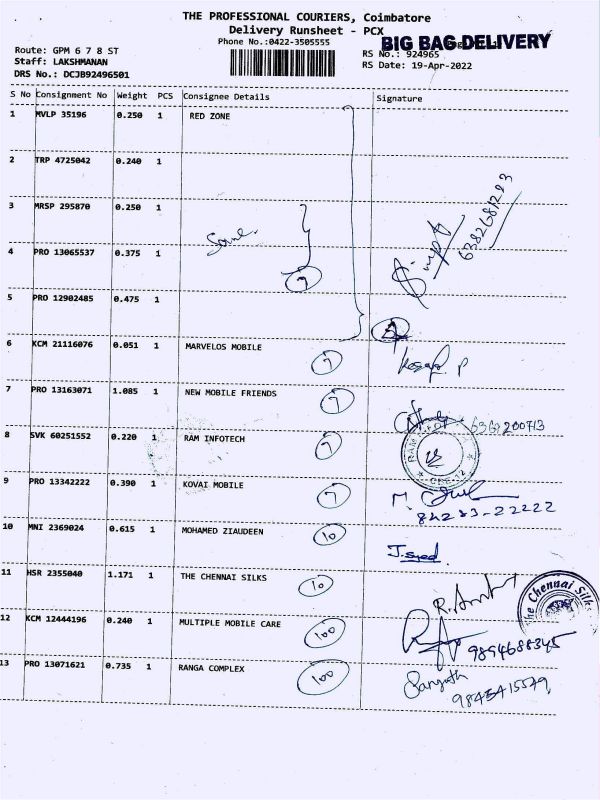 THE PROFESSIONAL COURIERS, Coimbatore
Delivery Runsheet - PCX
Phone No.:0422-3505555
BIG BAG DELIVERY
Route: GPM 6 7 8 ST
Staff: LAKSHMANAN
DRS No.: DCJB92496501
RS No.: 924965
RS Date: 19-Apr-2022
S No Consignment No Weight PCS Consignee Details Signature
1 MVLP 35196 0.250 1 RED ZONE
2 TRP 4725042 0.240 1
3 MRSP 295870 0.250 1
Same.
6382681283
4 PRO 13065537 0.375 1
7
5 PRO 12902485 0.475 1
6 KCM 21116076 0.051 1 MARVELOS MOBILE 7
7 PRO 13163071 1.085 1 NEW MOBILE FRIENDS 7
8 SVK 60251552 0.220 1 RAM INFOTECH 7
RAM
9 PRO 13342222 0.390 1 KOVAI MOBILE 7
84283-22222
10 MNI 2369024 0.615 1 MOHAMED ZIAUDEEN 10
J.syed
11 HSR 2355040 1.171 1 THE CHENNAI SILKS 10
The Chennai Silks
12 KCM 12444196 0.240 1 MULTIPLE MOBILE CARE 100
9894688345
13 PRO 13071621 0.735 1 RANGA COMPLEX 100